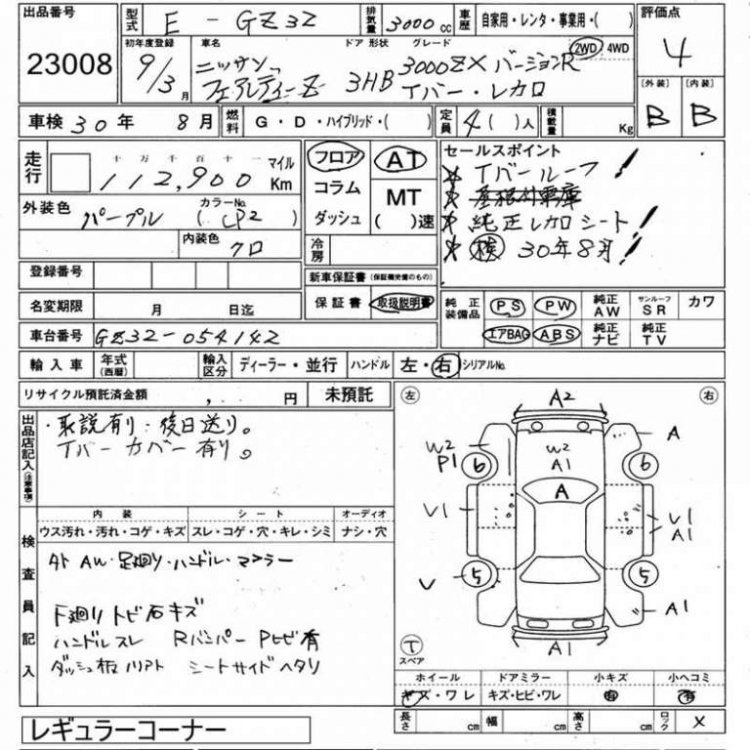 出品番号 型式 E-GZ32 排気量 3000cc 車歴 自家用・レンタ・事業用・( ) 評価点
23008 初年度登録 車名 ドア 形状 グレード 2WD 4WD 4
9/3月 ニッサン フェアレディーZ 3HB 3000ZX バージョンR
Tバー・レカロ
[外装] [内装]
B B
車検 30年 8月 燃料 G・D・ハイブリッド・( ) 定員 4( )人 積載量 Kg
走行 十万千百十一 マイル
112,900 Km
フロア AT
コラム MT
ダッシュ ( )速
セールスポイント
Tバールーフ
純正レカロシート
検 30年8月
外装色 パープル カラーNo. (LP2)
内装色 クロ
冷房
登録番号
新車保証書 (保証継続備のもの)
名変期限 月 日迄 保証書 取扱説明書
純正装備品 PS PW 純正AW サンルーフSR カワ
エアBAG ABS 純正ナビ 純正TV
車台番号 GZ32-054142
輸入車 年式(西暦) 輸入区分 ディーラー・並行 ハンドル 左・右 シリアルNo.
リサイクル預託済金額 , 円 未預託
出品店記入(注意事項)
・取説有り・後日送り。
Tバーカバー有り。
内装 シート オーディオ
ウス汚れ・汚れ・コゲ・キズ スレ・コゲ・穴・キレ・シミ ナシ・穴
検査員記入
外 AW・足廻り・ハンドル・マフラー
下廻りトビ石キズ
ハンドルスレ Rバンパー Pヒビ有
ダッシュ板ハリアト シートサイドヘタリ
左 A2 右
W2 P1 6 W2 A1 6 A
A
V1 V1 A1
V 5 5
A1
T スペア A1
ホイール ドアミラー 小キズ 小ヘコミ
キズ・ワレ キズ・ヒビ・ワレ 有 有
レギュラーコーナー
長さ cm 幅 cm 高さ cm ロック ×